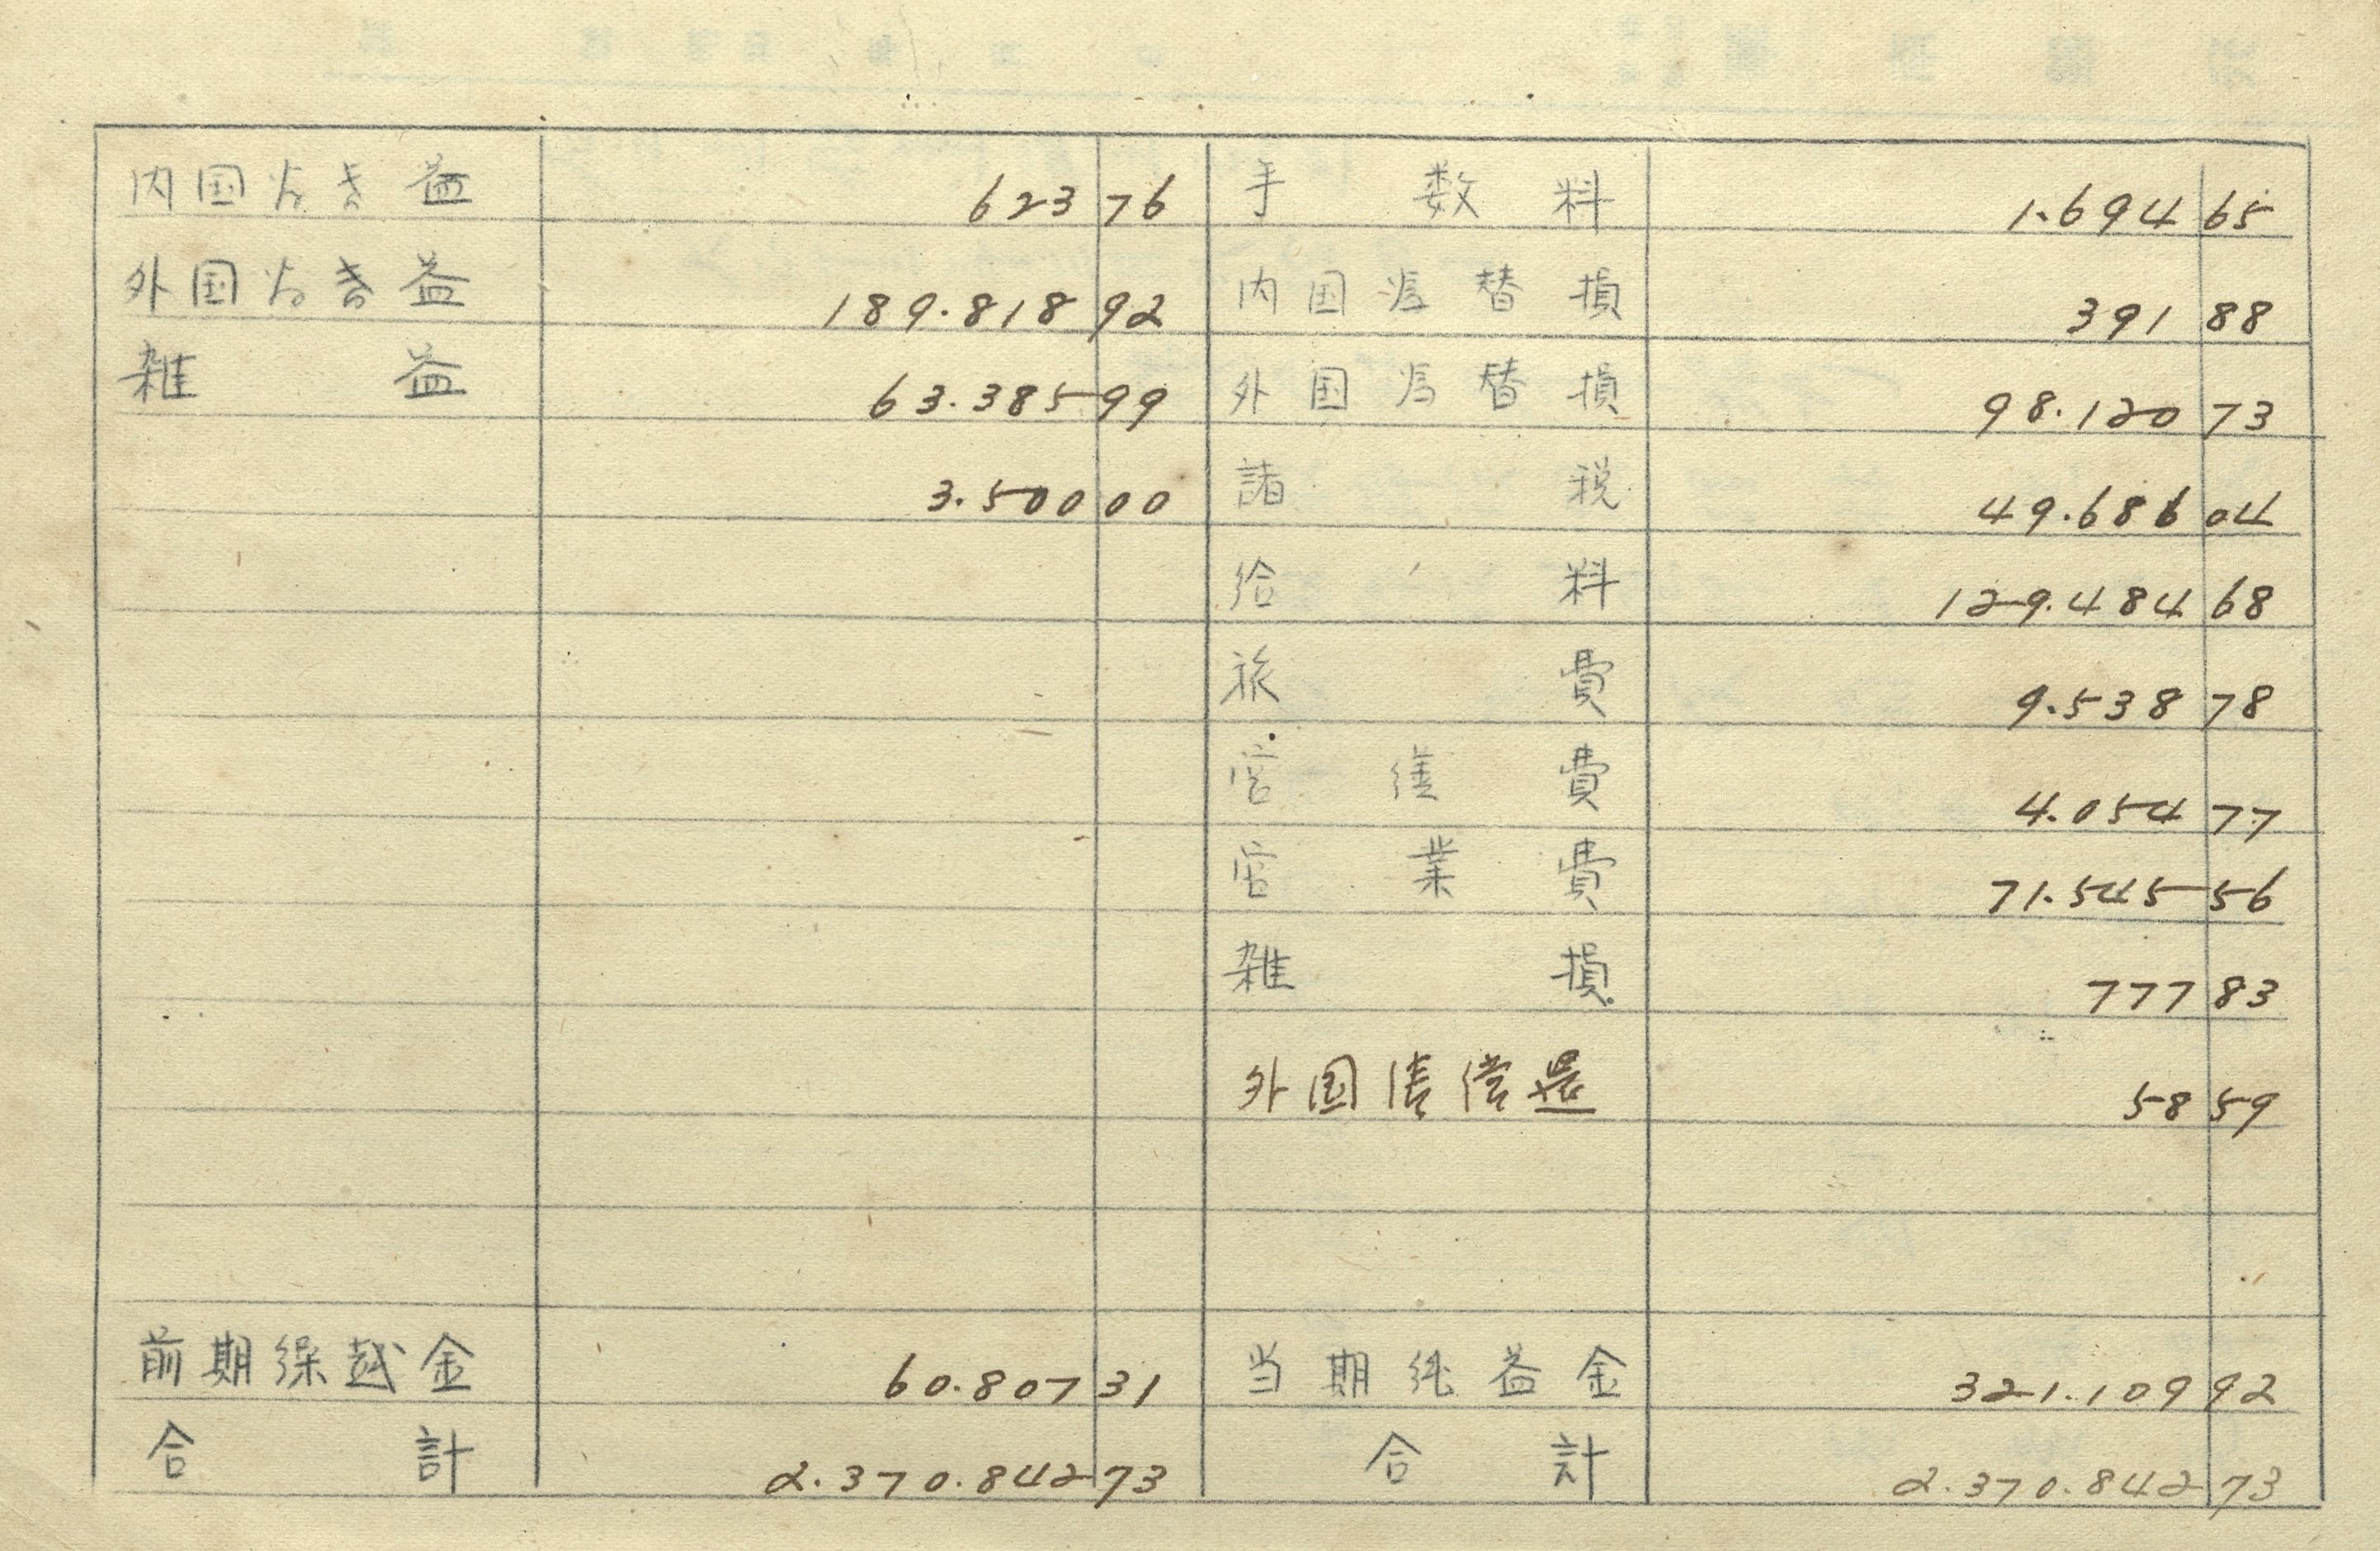 内国为き益 623 76 手数料 1.694 65
外国为き益 189.818 92 内国為替損 391 88
雑益 63.385 99 外国為替損 98.120 73
3.500 00 諸税 49.686 04
給料 129.484 68
旅費 9.538 78
営繕費 4.054 77
営業費 71.545 56
雑損 777 83
外国債償還 58 59
前期繰越金 60.807 31 当期純益金 321.109 92
合計 2.370.842 73 合計 2.370.842 73